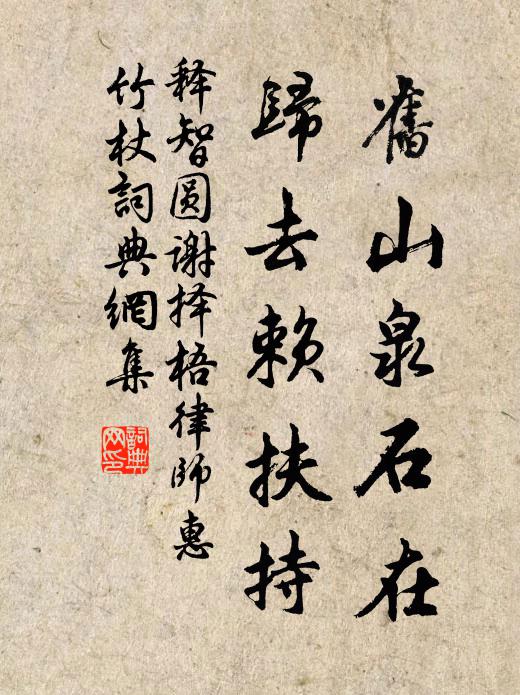 舊山泉石在
歸去賴扶持
释智圆谢择梧律師惠
竹杖詞典網集
詞典
网印